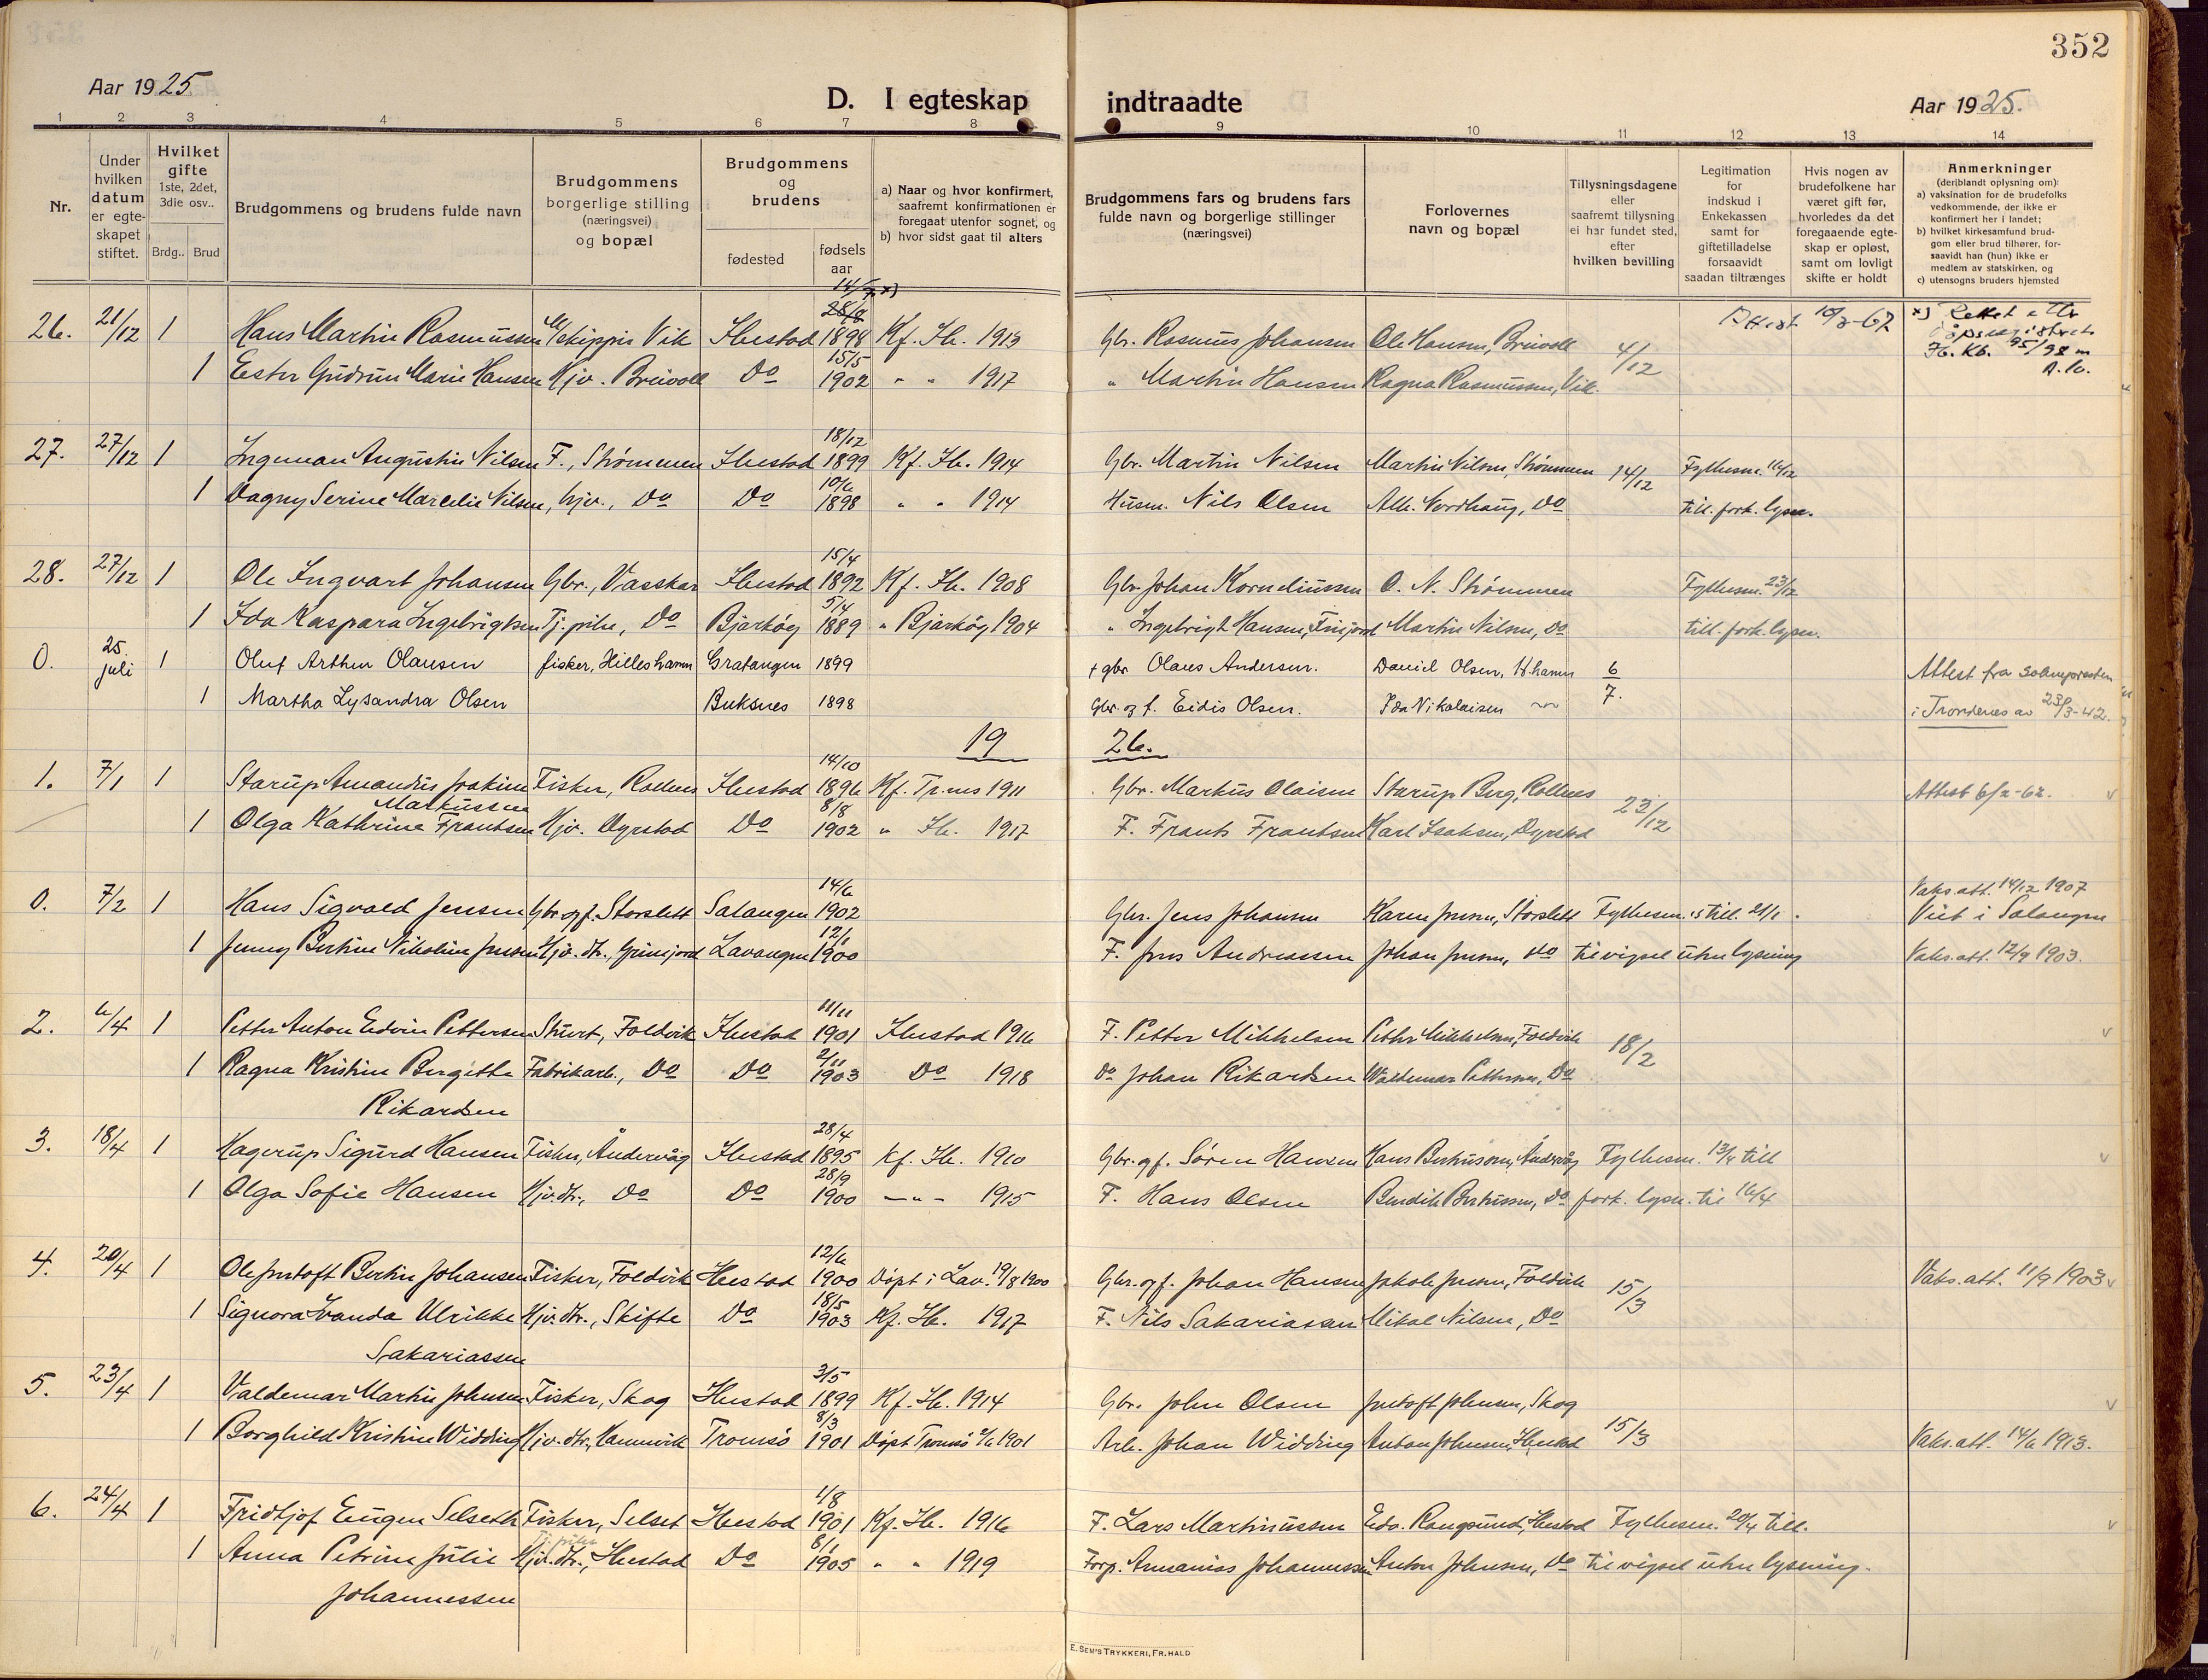 352
Aar 1925
D. I egteskap indtraadte
Aar 1925.
1 2 3 4 5 6 7 8 9 10 11 12 13 14
Nr.
Under hvilken datum er egteskapet stiftet.
Hvilket gifte 1ste, 2det, 3die osv..
Brdg.. Brud
Brudgommens og brudens fulde navn
Brudgommens borgerlige stilling (næringsvei) og bopæl
Brudgommens og brudens
fødested
fødsels aar
a) Naar og hvor konfirmert, saafremt konfirmationen er foregaat utenfor sognet, og
b) hvor sidst gaat til alters
Brudgommens fars og brudens fars fulde navn og borgerlige stillinger (næringsvei)
Forlovernes navn og bopæl
Tillysningsdagene eller saafremt tillysning ei har fundet sted, efter hvilken bevilling
Legitimation for indskud i Enkekassen samt for giftetilladelse forsaavidt saadan tiltrænges
Hvis nogen av brudefolkene har været gift før, hvorledes da det foregaaende egteskap er opløst, samt om lovligt skifte er holdt
Anmerkninger
(deriblandt oplysning om):
a) vaksination for de brudefolks vedkommende, der ikke er konfirmert her i landet;
b) hvilket kirkesamfund brudgom eller brud tilhører, forsaavidt han (hun) ikke er medlem av statskirken, og
c) utensogns bruders hjemsted
26. 21/12 1 Hans Martin Rasmussen Vik Ibestad 1898 Kf. Ib. 1913 Gbr. Rasmus Johansen Ole Hansen, Breivoll 4/12 Attest
1 Ester Gudrun Marie Hansen Hjv. Breivoll Do 15/5 1902 " " 1917 " Martin Hansen Ragna Rasmussen, Vik.
27. 27/12 1 Ingeman Augustin Nilsen F., Strømmen Ibestad 18/12 1899 Kf. Ib. 1914 Gbr. Martin Nilsen Martin Nilsen, Strømmen 14/12 Fylkesm. 16/12
1 Dagny Serine Marcelie Nilsen, hjv., Do Do 10/6 1898 " " 1914 Husm. Nils Olsen Alb. Nordhaug, Do till. fork. lysn.
28. 27/12 1 Ole Ingvart Johansen Gbr., Vasskar Ibestad 15/4 1892 Kf. Ib. 1908 Gbr. Johan Korneliussen O. N. Strømmen Fylkesm. 23/12
1 Ida Kaspara Ingebrigtsen Tj.pike, Do Bjarkøy 5/4 1889 " Bjarkøy 1904 " Ingebrigt Hansen, Martin Nilsen, Do till. fork. lysn.
0. 25. juli 1 Oluf Arthur Olausen fisker, Hilleshamn Gratangen 1899 + gbr. Olaus Andersen. Daniel Olsen, H.hamn 6/7. Attest fra soknepresten
1 Martha Lysandra Olsen Buksnes 1898 Gbr. og f. Eidis Olsen. Ida Nikolaisen i Trondenes av 23/3-42.
19 26.
1. 7/1 1 Starup Amandus Joakim Markussen Fisker, Rollnes Ibestad 14/10 1896 Kf. Tr.nes 1911 Gbr. Markus Olaisen Starup Berg, Rollnes 23/12 Attest
1 Olga Kathrine Frantsen Hjv. Dyrstad Do 8/8 1902 " Ib. 1917 F. Frants Frantsen Karl Isaksen, Dyrstad
0. 7/2 1 Hans Sigvald Jensen Gbr. og f. Storslett Salangen 14/6 1902 Gbr. Jens Johansen Karen Jensen, Storslett Fylkesm.s till. 21/1. Vaks.att. 14/12 1907 Viet i Salangen
1 Jenny Bertine Nikoline Jensen Hjv. dtr., Lavangen 12/1 1900 F. Jens Andreassen Johan Jensen, do til vigsel uten lysning Vaks.att. 12/9 1903.
2. 6/4 1 Petter Anton Edvin Pettersen Stuert, Foldvik Ibestad 11/11 1901 Ibestad 1916 F. Petter Mikkelsen Petter Mikkelsen, Foldvik 18/2
1 Ragna Kristine Bergitte Fabrikarb., Do Do 2/11 1903 Do 1918 Do Johan Rikardsen Waldemar Pettersen, Do
Rikardsen
3. 18/4 1 Hagerup Sigurd Hansen Fisker, Åndervåg Ibestad 28/4 1895 Kf. Ib. 1910 Gbr. og f. Søren Hansen Hans Bertheussen, Åndervåg Fylkesm. 13/4 till
1 Olga Sofie Hansen Hjv.dtr., Do Do 28/9 1900 — " — 1915 F. Hans Olsen Bendik Bertheussen, Do fork. lysn. til 16/4
4. 20/4 1 Ole Jentoft Bertin Johansen Fisker, Foldvik Ibestad 12/6 1900 Døpt i Lav. 19/8 1900 Gbr. og f. Johan Hansen Jakob Jensen, Foldvik 15/3 Vaks.att. 11/9 1903
1 Signora Vanda Ulrikke Hjv. dtr., Skifte Do 18/5 1903 Kf. Ib. 1917 F. Nils Sakariassen Mikal Nilsen, Do
Sakariassen
5. 23/4 1 Valdemar Martin Johnsen Fisker, Skog Ibestad 3/5 1899 Kf. Ib. 1914 Gbr. John Olsen Jentoft Johnsen, Skog
1 Borghild Kristine Widding Hjv. dtr., Hamnvik Tromsø 8/3 1901 Døpt Tromsø 2/6 1901 Arb. Johan Widding Anton Johnsen, Ibestad 15/3 Vaks.att. 14/6 1913.
6. 24/4 1 Fridtjof Eugen Selseth Fisker, Selset Ibestad 1/8 1901 Kf. Ib. 1916 F. Lars Martinussen Edv. Rangsund, Ibestad Fylkesm. 20/4 till.
1 Anna Petrine Julie Hjv. dtr., Ibestad Do 8/1 1905 " " 1919 Forp. Annanias Johannessen Anton Johnsen, Do til vigsel uten lysning.
Johannessen
E. SEM'S TRYKKERI, FR.HALD